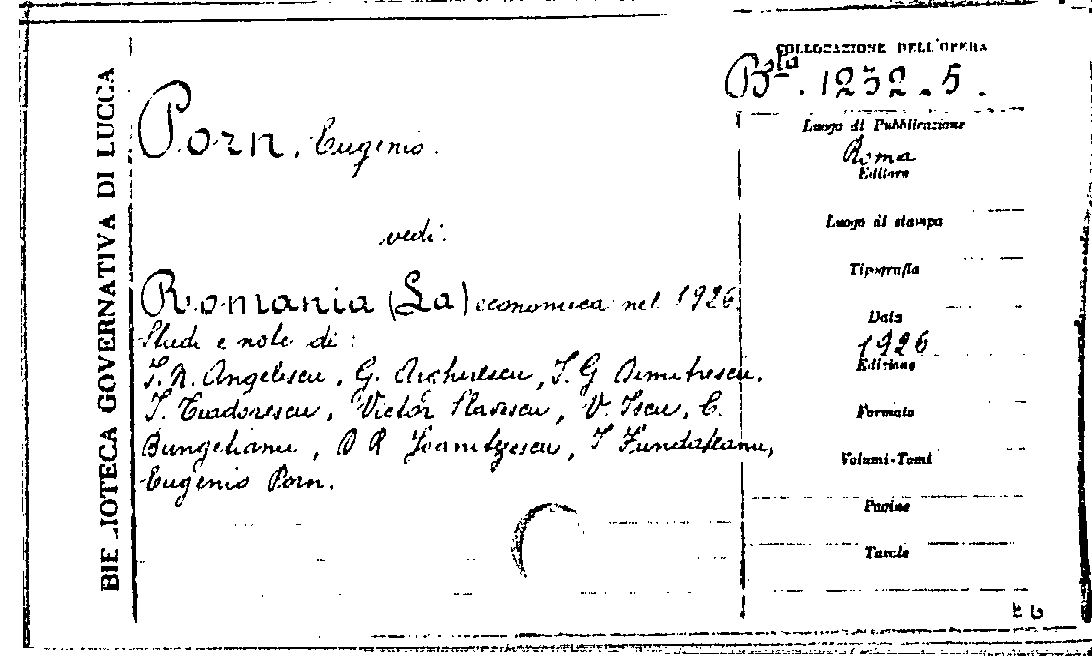 BIBLIOTECA GOVERNATIVA DI LUCCA
COLLOCAZIONE DELL'OPERA
Bta. 1232.5.
Porn, Eugenio.
vedi:
Romania (La) economica nel 1926.
Studi e note di:
I. N. Angelescu, G. Dimitrescu,
I. Victor Slavescu, V. Iscu, C.
Bungetianu, I
Eugenio Porn.
Luogo di Pubblicazione
Roma
Editore
Luogo di stampa
Tipografia
Data
1926
Edizione
Formato
Volumi-Tomi
Pagine
Tavole